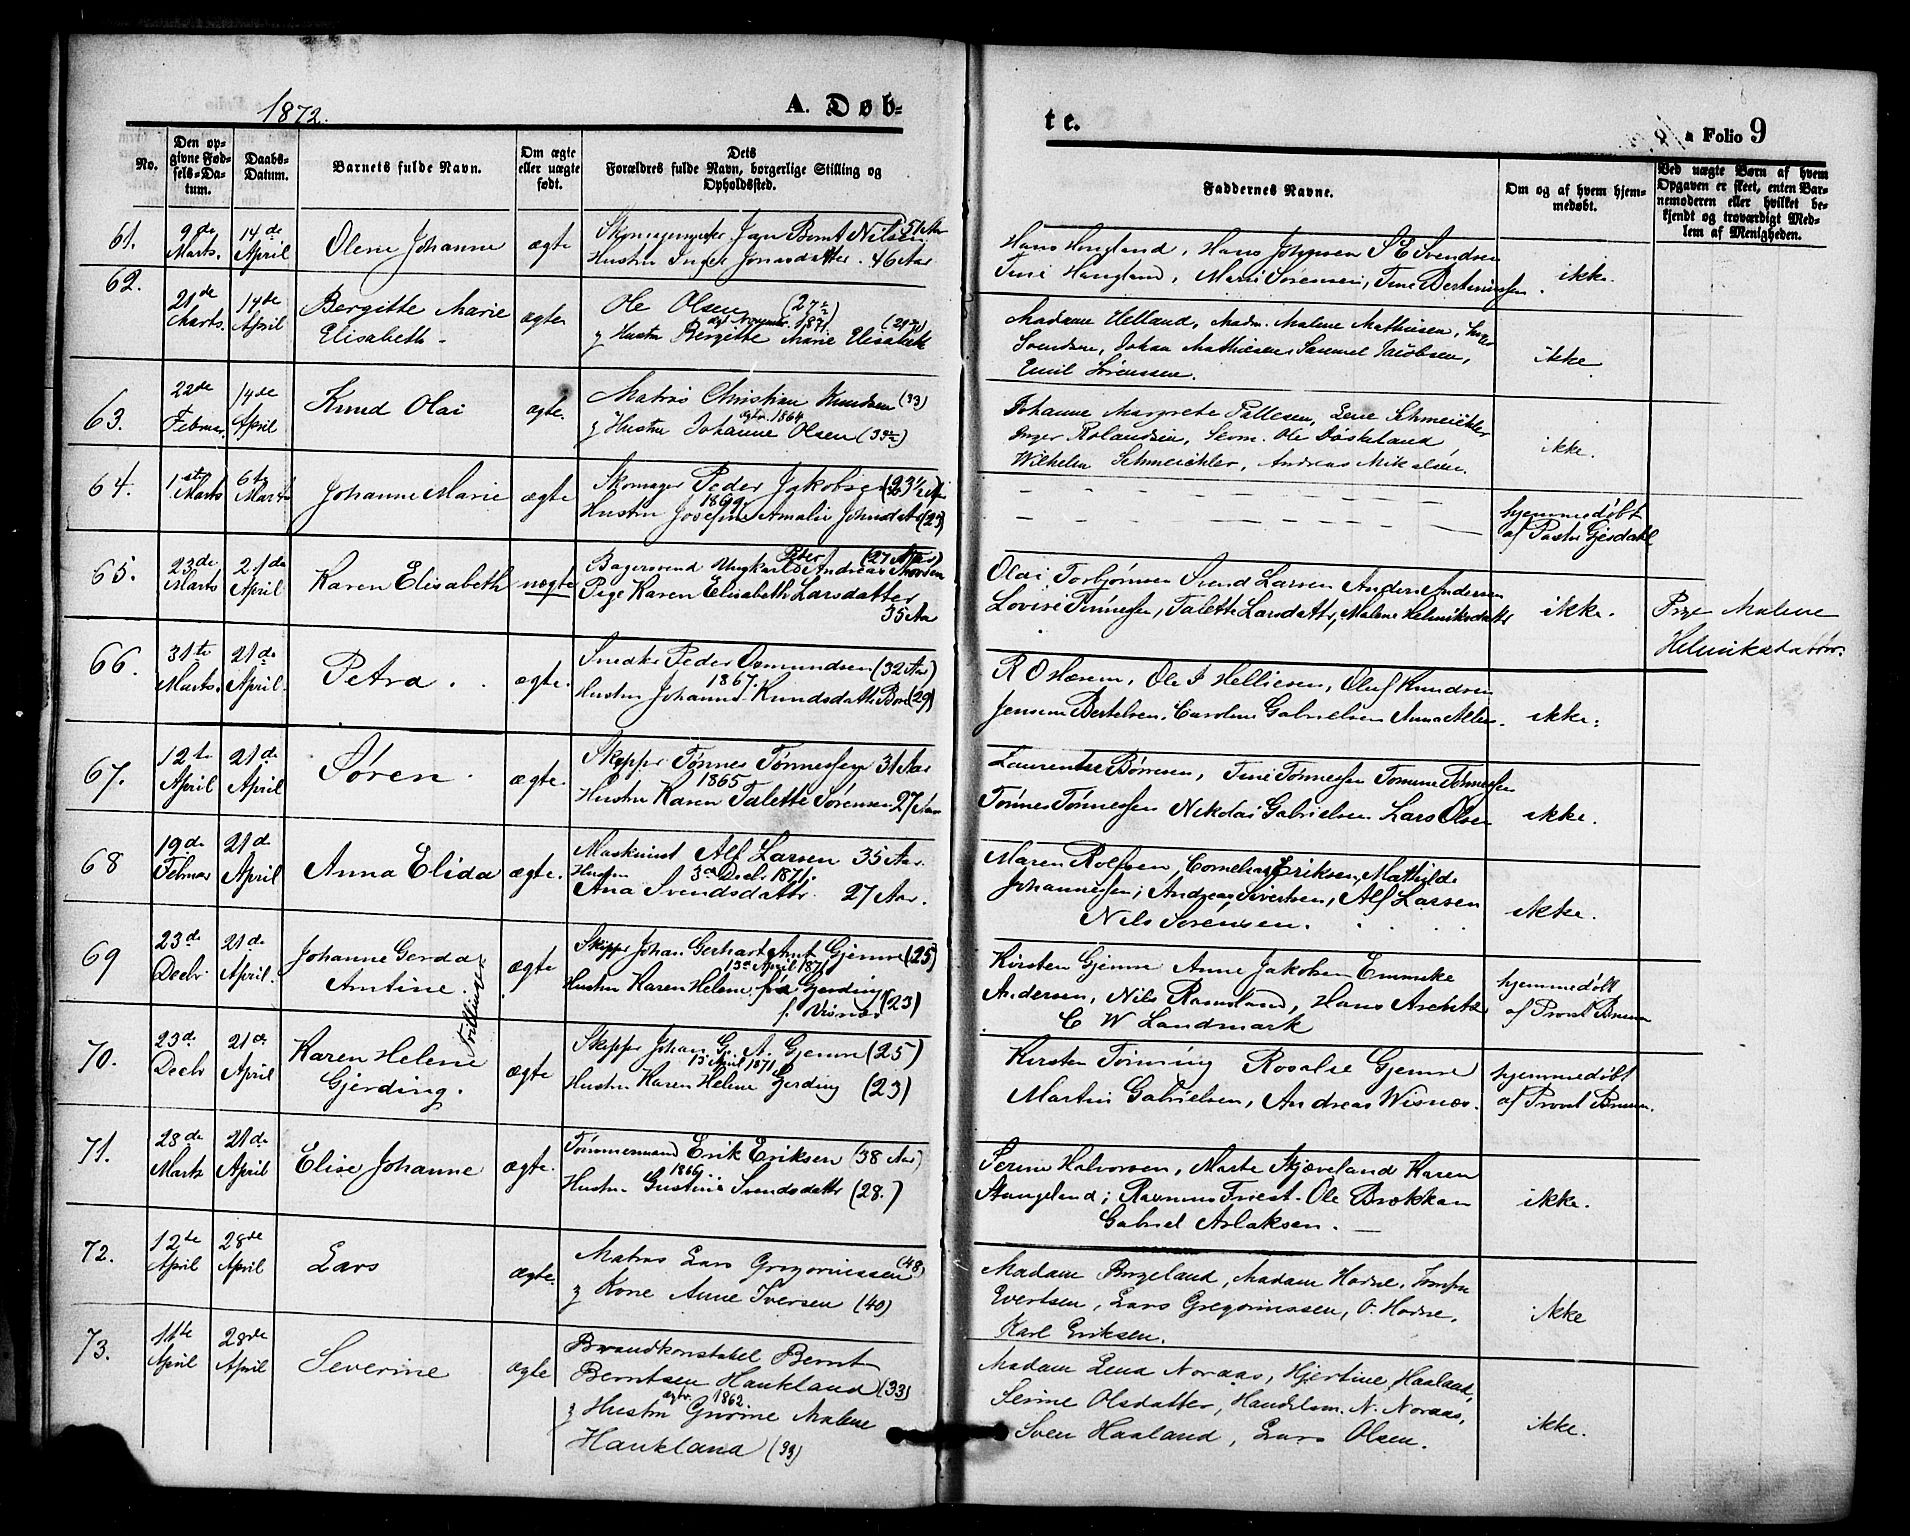 1872.
A. Døb-
No.
Den op-
givne Fød-
sels-Da-
tum.
Daabs-
Datum.
Barnets fulde Navn.
Om ægte
eller uægte
født.
Dets
Forældres fulde Navn, borgerlige Stilling og
Opholdssted.
61.
9de
Marts.
14de
April
Olene Johanne
ægte
Jan Bernt Nilsen 51 Aar
Hustru Inger Jonasdatter. 46 Aar
62.
21de
Marts.
14de
April
Bergitte Marie
Elisabeth
ægte
Ole Olsen (27
1871.
Hustru Bergitte Marie Elisabeth
63.
22de
Februar.
14de
April
Knud Olai
ægte.
Matros Christian Knudsen (33)
1864
Hustru Johanne Olsen
64.
1ste
Marts
6te
Marts
Johanne Marie
ægte
Skomager Peder Jakobsen (23 1/2 Aar
1869
Hustru Josefine Amalie Johnsdatter (23)
65.
23de
Marts
21de
April
Karen Elisabeth
uægte
Bagersvend Ungkarl Peder Andreas (27 Aar)
Pige Karen Elisabeth Larsdatter
35 Aar
66.
31te
Marts.
21de
April.
Petra.
ægte.
Snedker Peder Osmundsen (32 Aar)
1867.
Hustru Johanne Knudsdatter Bore (29)
67.
12te
April
21de
April
Søren
ægte.
Skipper Tønnes Tønnessen 31 Aar
1865
Hustru Karen Talette Sørensen 27 Aar
68
19de
Februar
21de
April
Anna Elida
ægte.
Maskinist Alf Larsen 35 Aar.
Hustru 3de Decbr. 1871.
Ana Svendsdatter. 27 Aar.
69
23de
Decbr
21de
April.
Johanne Gerda
Amtine
Tvillinger
ægte
Skipper Johan Gerhard Amt Gjemre (25)
13de April 1871
Hustru Karen Helene Gjerding
f. Visnæs (23)
70.
23de
Decbr
21de
April
Karen Helene
Gjerding.
ægte
Skipper Johan G. A. Gjemre (25)
13 April 1871
Hustru Karen Helene Gjerding (23)
71.
28de
Marts
21de
April
Elise Johanne
ægte.
Tømmermand Erik Eriksen (38 Aar)
1866.
Hustru Gustine Svendsdatter (28.)
72.
12te
April
28de
April
Lars
ægte
Matros Lars Gregoriussen (48)
Kone Anne Iversen (40)
73.
11te
April
28de
April
Severine
ægte
Brandkonstabel Bernt
Berntsen Haukland (33)
1862
Hustru Gurine Malene
Haukland (33)
te.
a Folio 9
Faddernes Navne.
Om og af hvem hjem-
medøbt.
Ved uægte Børn af hvem
Opgaven er skeet, enten Bar-
nemoderen eller hvilket be-
kjendt og troværdigt Med-
lem af Menigheden.
Hans Haugland, Hans Johnsen S E Svendsen
Tine Haugland, Marie Sørensen, Tine Berteniussen.
ikke.
Madame Helland, Madm. Malene Mathiesen,
Svendsen, Johan Mathiesen, Samuel Jacobsen,
Emil Sørenssen.
ikke
Johanne Margrete Pallesen, Lene Schmeichler
Inger Rolandsen, Ole Døskeland
Wilhelm Schmeichler, Andreas Mikalsen.
ikke.
hjemmedøbt
af Pastor Gjesdahl
Olai Torbjørnsen Svend Larsen Anders Andersen
Lovise Tønnessen, Talette Larsdatter, Malene Helmiksdatter
ikke.
Pige Malene
Helmiksdatter.
R O Hæsem, Ole I Helliesen, Oluf Knudsen
Jensine Bertelsen. Caroline Gabrielsen Anna
ikke.
Laurentze Børesen, Tine Tønnessen Tomine Tønnessen
Tønnes Tønnessen Nikolai Gabrielsen Lars Olsen
ikke.
Maren Rolfsen, Cornelius Eriksen, Mathilde
Johannessen; Andreas Sivertsen, Alf Larsen
Nils Sørensen.
ikke.
Kirsten Gjemre Anne Jakobsen Emmike
Andersen, Nils Ravnsland, Hans
C W Landmark
hjemmedøbt
af Provst Bruun
Kirsten Tønning Rosalie Gjemre
Martin Gabrielsen, Andreas Wisnæs.
hjemmedøbt
af Provst Bruun.
Serine Halvorsen, Marte Skjæveland Karen
Stangeland; Rasmus Friest. Ole Brekkan
Gabriel Aslaksen.
ikke.
Madam Birgeland, Madam Hodne,
Evertsen, Lars Gregoriussen, O. Hodne,
Karl Eriksen.
ikke
Madam Lena Noraas, Hjertine Haaland,
Serine Olsdatter, Handelsm. N. Noraas,
Sven Haaland, Lars Olsen.
ikke.